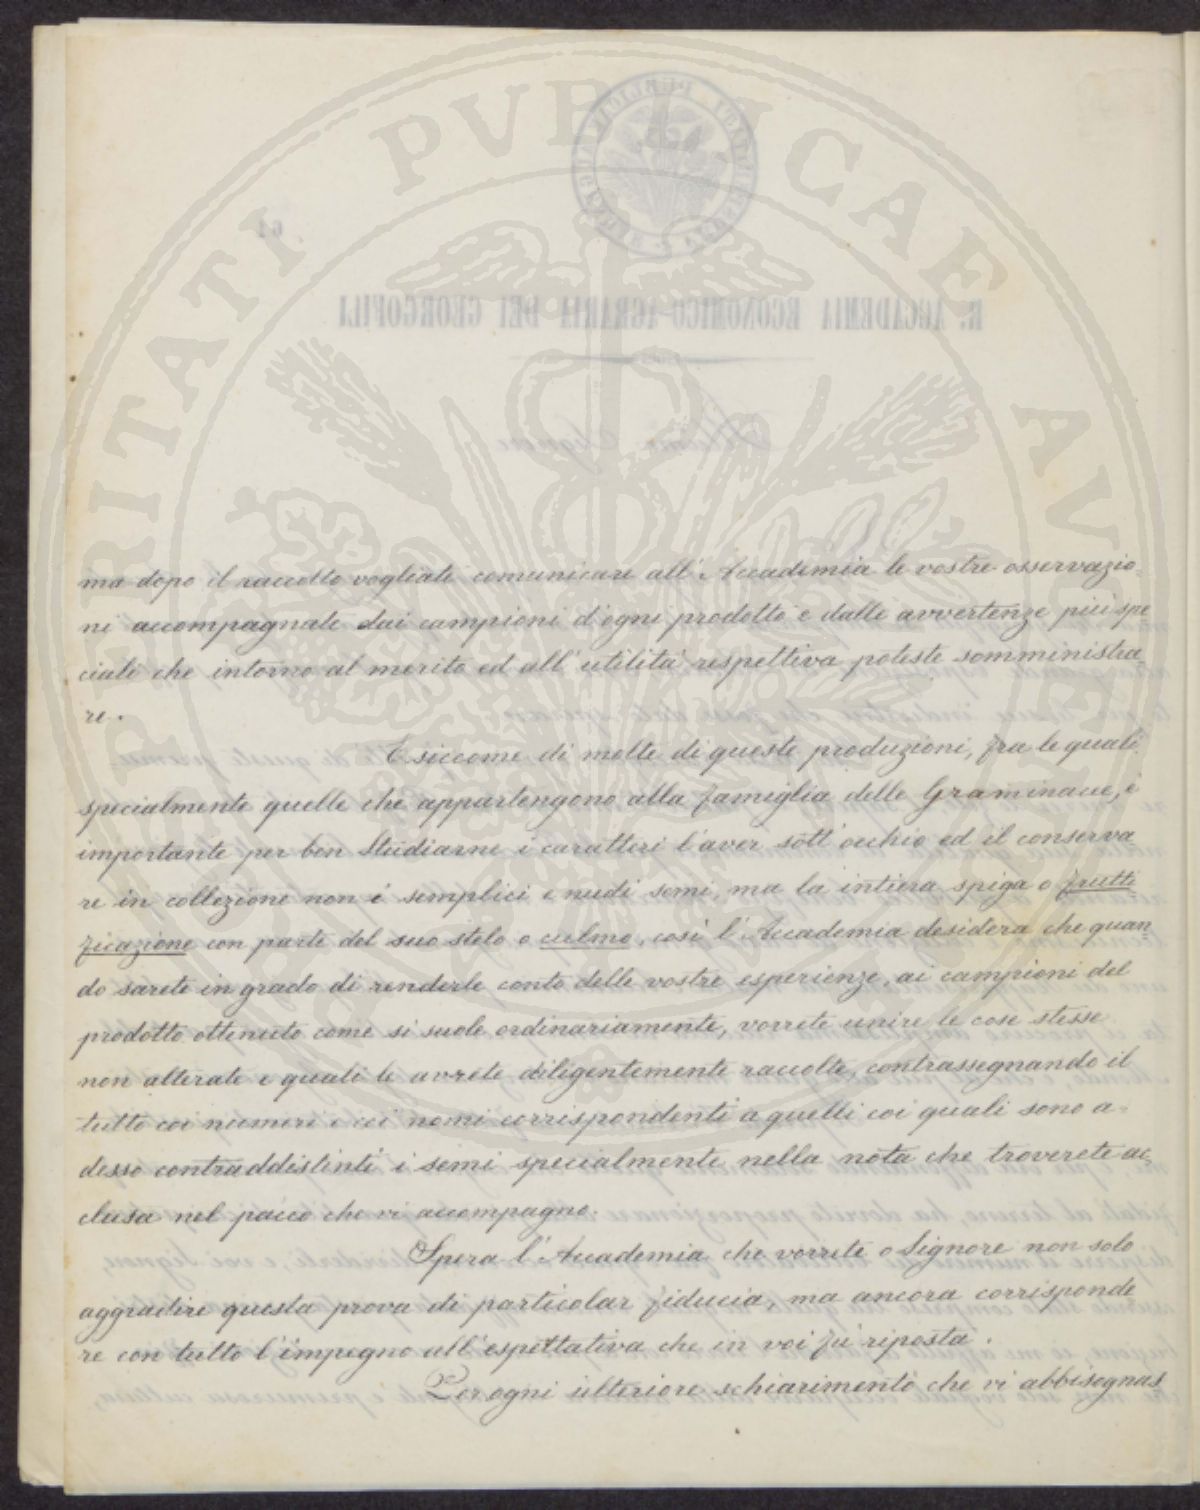 PROSPERITATI PUBLICAE AUGENDAE
R. ACCADEMIA ECONOMICO-AGRARIA DEI GEORGOFILI
ma dopo il raccolto vogliate comunicare all'Accademia le vostre osservazio=
ni accompagnate dai campioni d'ogni prodotto e dalle avvertenze più spe
ciali che intorno al merito ed all'utilità respettiva poteste somministra
re.
E siccome di molte di queste produzioni, fra le quali
specialmente quelle che appartengono alla famiglia delle Graminacee, è
importante per ben studiarne i caratteri l'aver sott'occhio ed il conserva
re in collezione non i semplici e nudi semi, ma la intiera spiga o frutti
ficazione con parte del suo stelo o culmo, così l'Accademia desidera che quan
do sarete in grado di renderle conto delle vostre esperienze, ai campioni del
prodotto ottenuto come si suole ordinariamente, vorrete unire le cose stesse
non alterate e quali le avrete diligentemente raccolte, contrassegnando il
tutto coi numeri e coi nomi corrispondenti a quelli coi quali sono a=
desso contraddistinti i semi specialmente nella nota che troverete ac
clusa nel pacco che vi accompagno.
Spera l'Accademia che vorrete o Signore non solo
aggradire questa prova di particolar fiducia, ma ancora corrisponde
re con tutto l'impegno all'espettativa che in voi fu riposta.
Per ogni ulteriore schiarimento che vi abbisognas